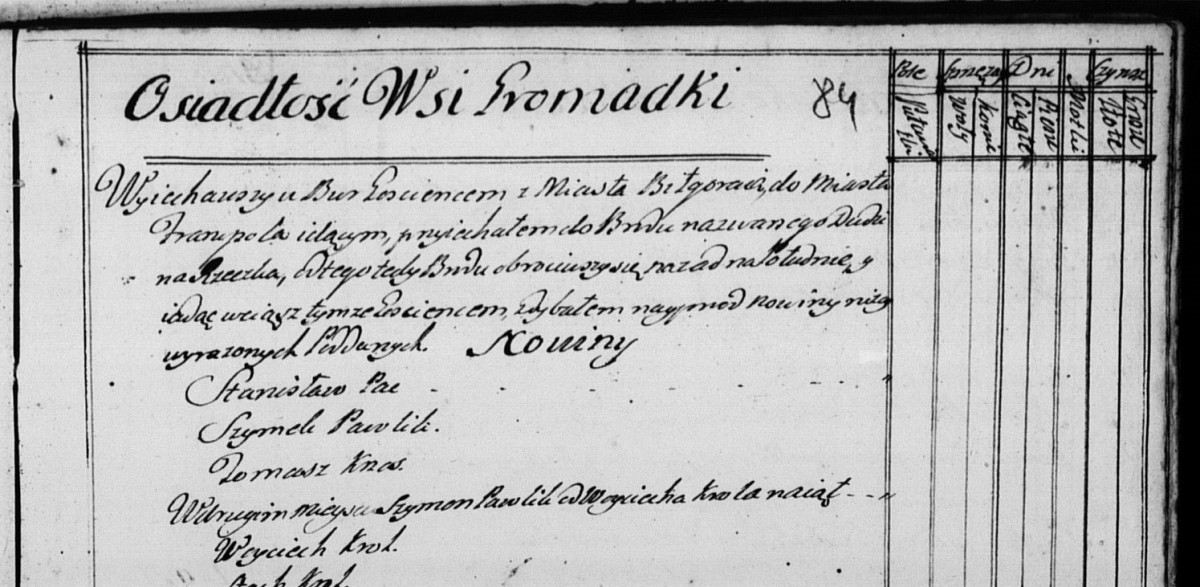 Osiadłość Wsi Gromadki 84
Pole Sprzęzay Dni Czynsz
Woły Konni Ciągłe Piesze Motki Złote Grosze
Wyiechawszy u Bur Gosciencem z Miasta Biłgoraia, do Miasta
Frampola idącym, przyiechałem do Brodu nazwanego Dudu
na Rzeczka, od tego tedy Brodu obrociwszy się nazad na Południe, y
iadąc wciąsz tymze Gosciencem, zdybałem naypmod Nowiny nizey
wyrazonych Poddanych. Nowiny
Stanisław Pac
Szymek Pawlik.
Tomasz Knas.
W drugim mieyscu Szymon Pawlik od Woyciecha Krola naiął
Woyciech Krol.
Krol.